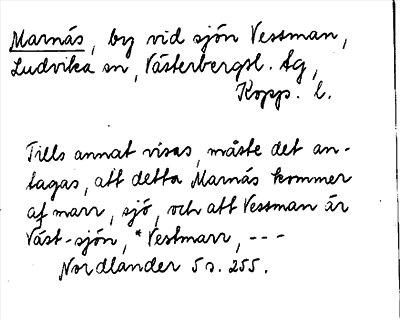 Marnäs, by vid sjön Vessman,
Ludvika sn, Västerbergsl. tg,
Kopp. l.
Tills annat visas, måste det an-
tagas, att detta Marnäs kommer
af marr, sjö, och att Vessman är
Väst-sjön, *Vestmarr, ---
Nordlander 5 s. 255.